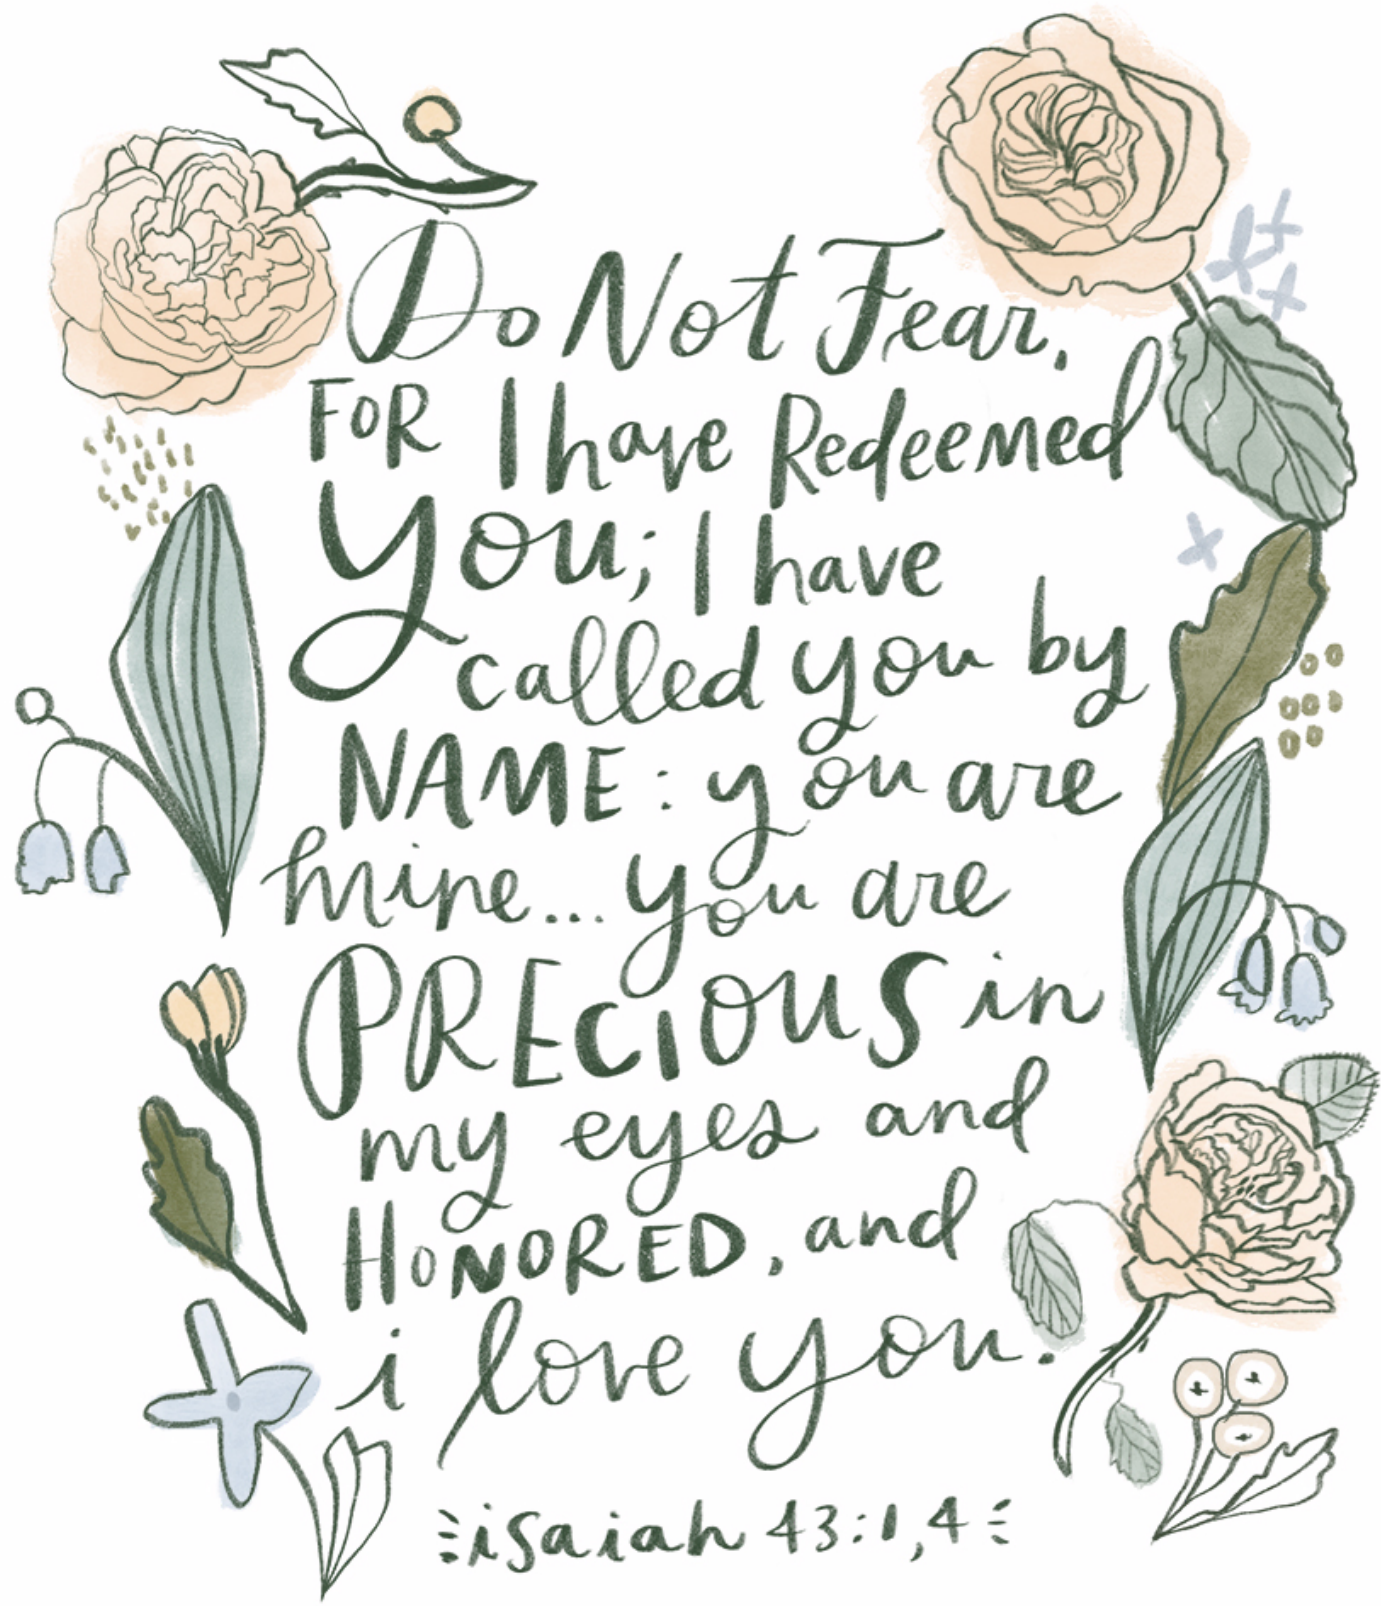 Do Not Fear,
FOR I have Redeemed
You; I have
called you by
NAME: you are
mine... you are
PRECIOUS in
my eyes and
HONORED, and
i love you.
isaiah 43:1,4